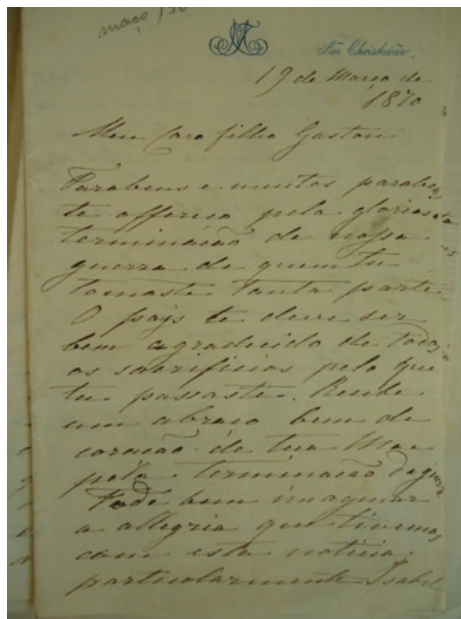 maço 156
São Christovão.
19 de Março de
1870
Meu Caro filho Gaston
Parabens e muitos parabens
te offereço pela gloriosa
terminação de nossa
guerra de quem tu
tomaste tanta parte.
O pais te deve ser
bem agradecido de todos
os sacrificios pelo que
tu passaste. Recebe
um abraço bem de
coração de tua Mae
pela terminação da guerra
Pode bem imaginar
a allegria que tivemos
com esta noticia,
particularmente Isabel